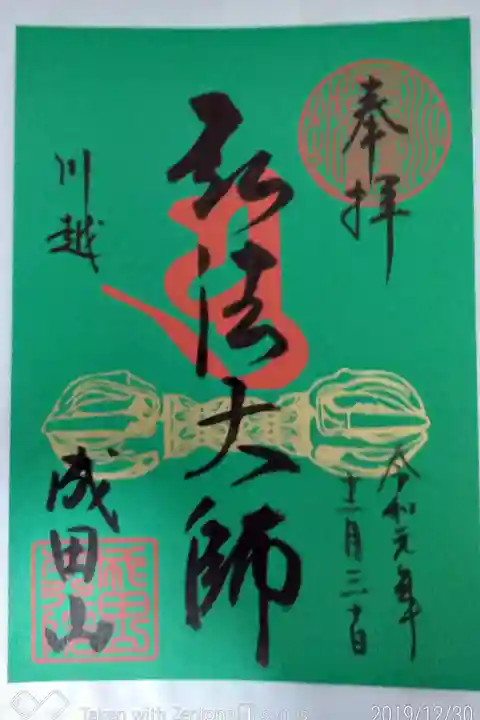 奉拝
弘法大師
令和元年
十二月三十日
川越
成田山
Taken with Zenfone
2019/12/30